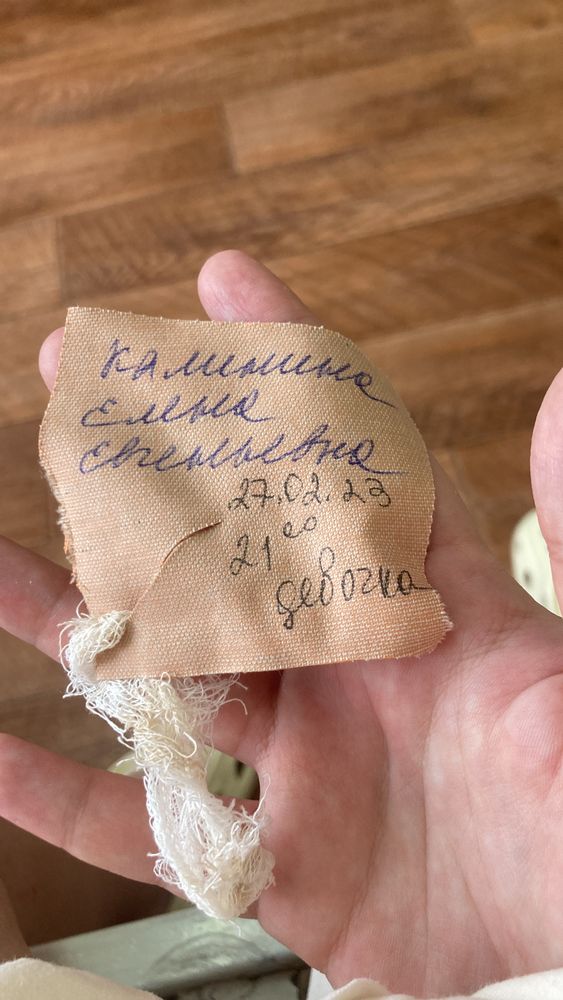 Калинина
Елена
Евгеньевна
27.02.23
21 00
девочка